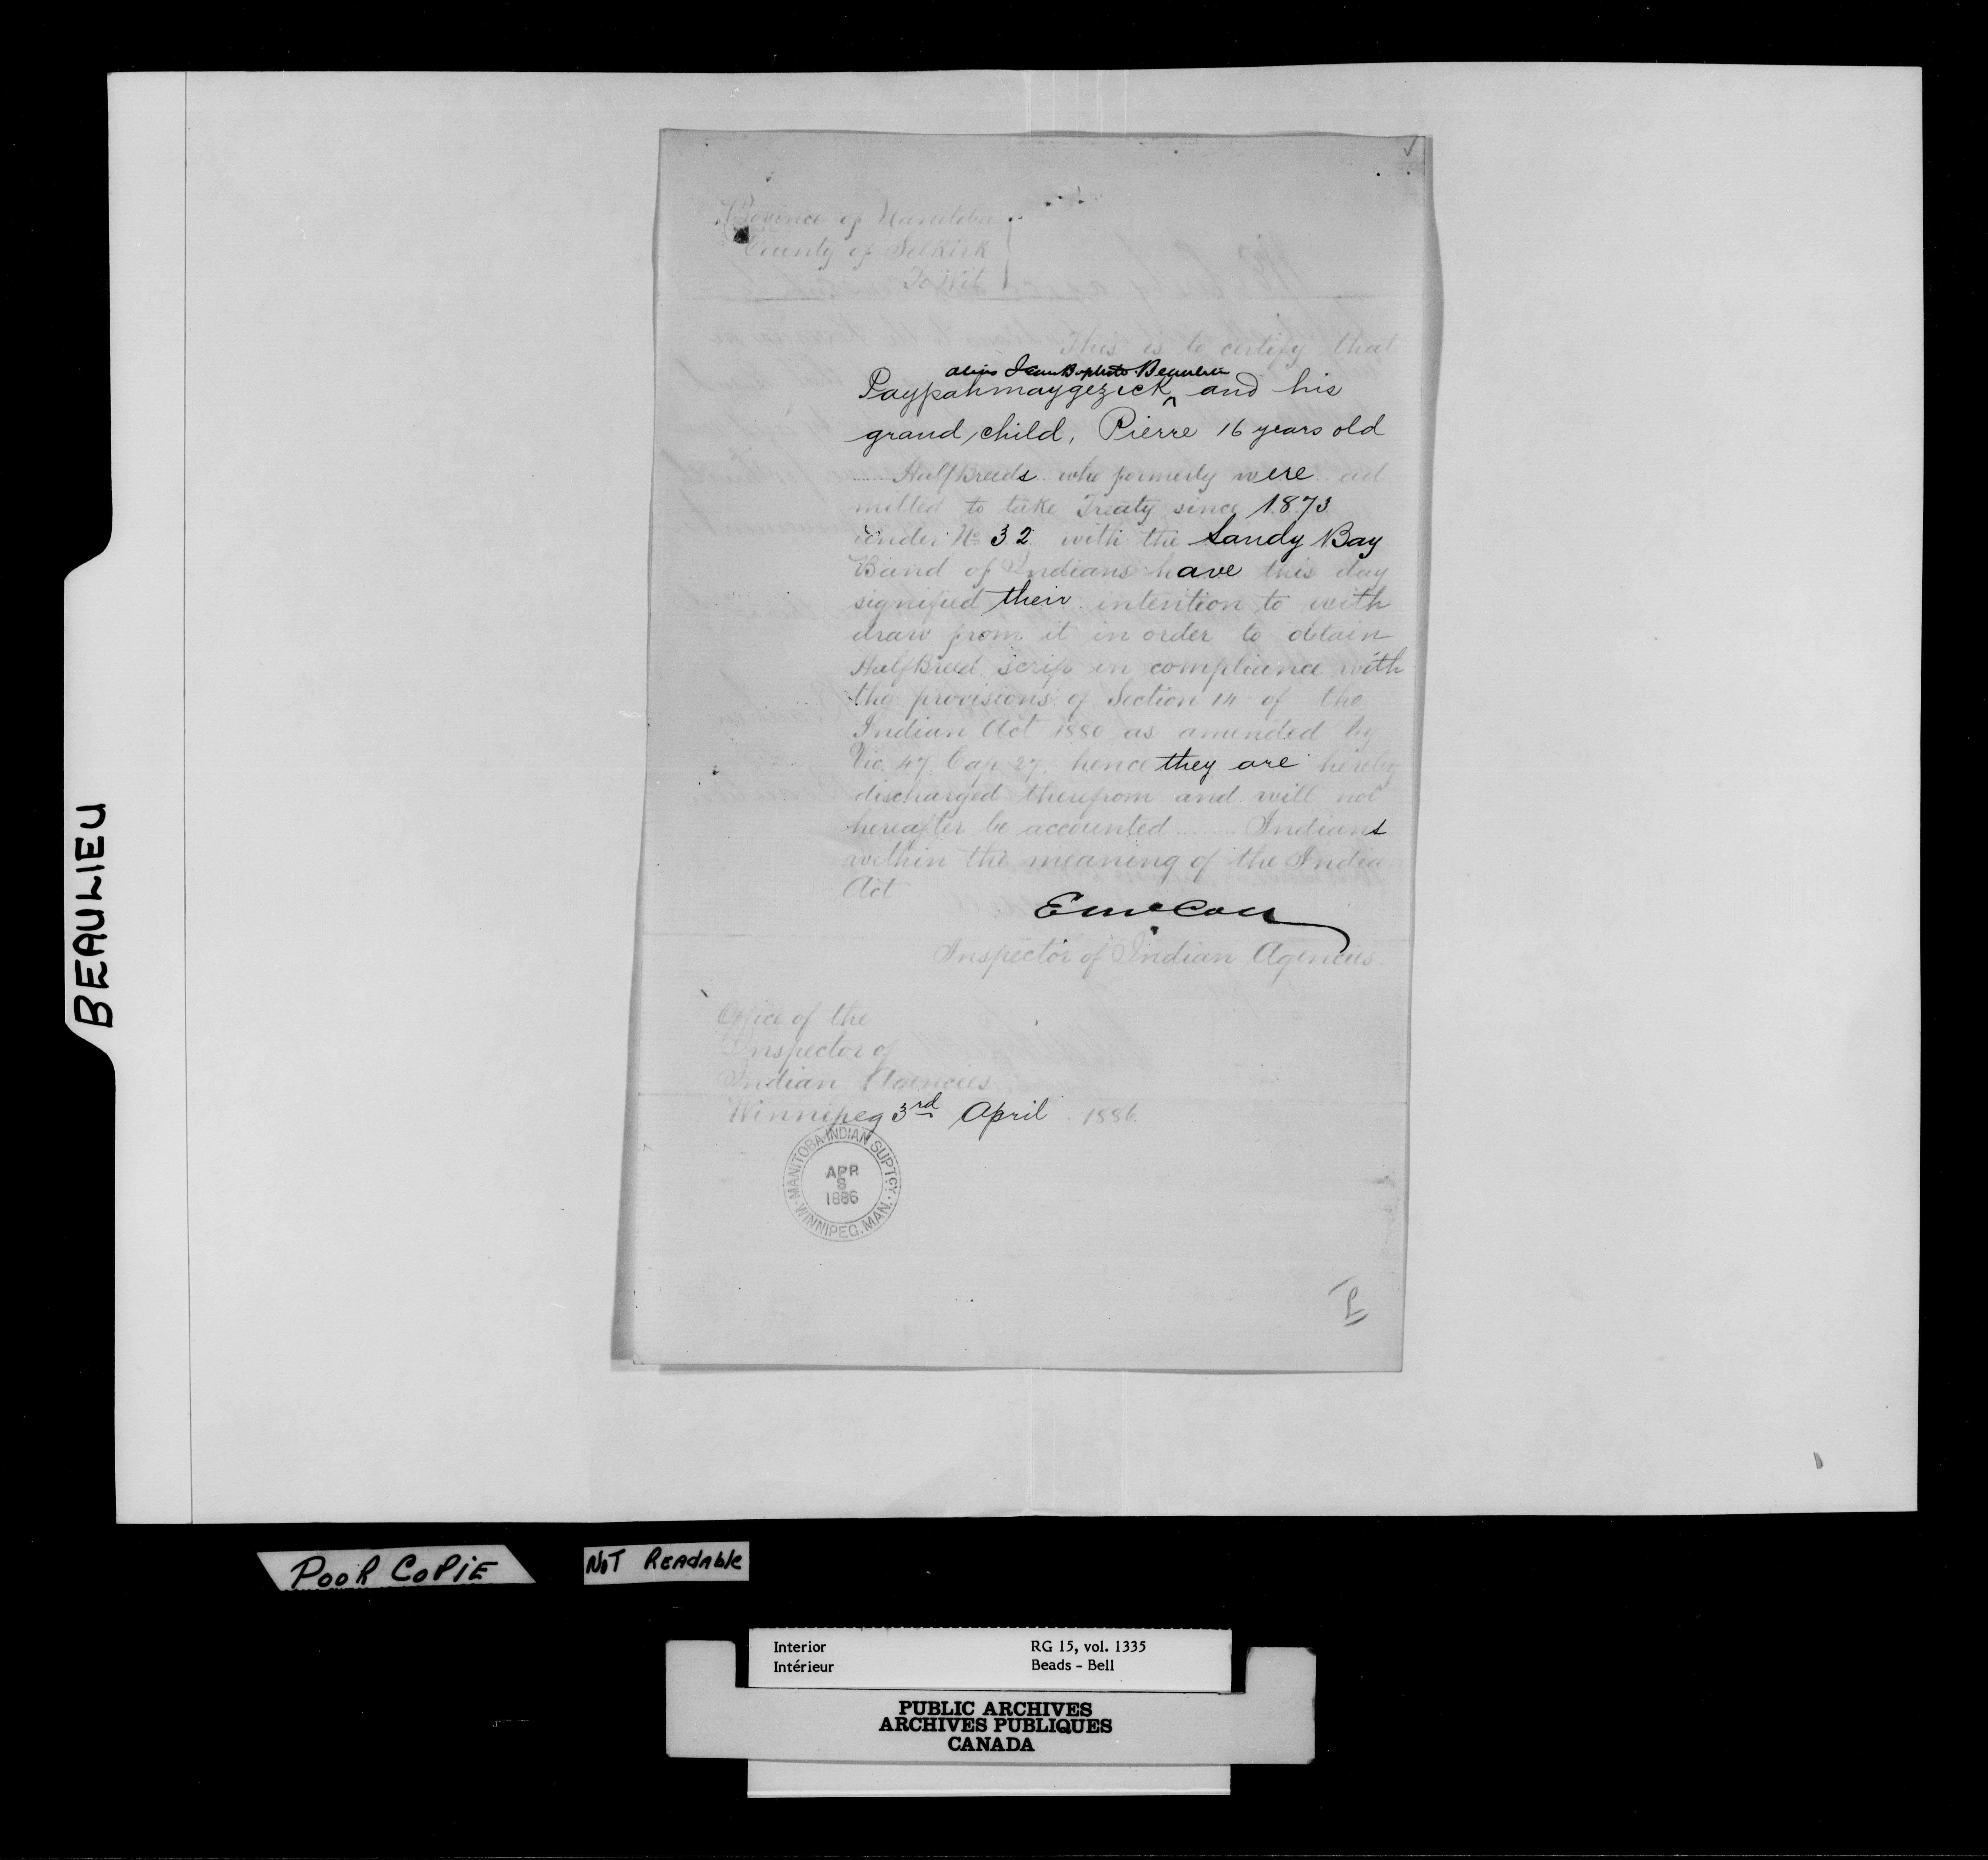 Province of Manitoba
County of Selkirk
To Wit
This is to certify that
alias Jean Baptiste Beaulieu
Paypahmaygezick ^ and his
grand child, Pierre 16 years old
HalfBreeds who formerly were ad
mitted to take Treaty since 1873
under No 32 with the Sandy Bay
Band of Indians have this day
signified their intention to with
draw from it in order to obtain
HalfBreed scrip in compliance with
the provisions of Section 14 of the
Indian Act 1880 as amended by
Vic. 47. Cap 27. hence they are hereby
discharged therefrom and will not
hereafter be accounted ........ Indians
within the meaning of the Indian
Act
EMcColl
Inspector of Indian Agencies
Office of the
Inspector of
Indian Agencies
Winnipeg 3rd April 1886.
MANITOBA INDIAN SUPTCY.
APR
8
1886
WINNIPEG. MAN.
BEAULIEU
POOR COPIE
NOT READABLE
Interior RG 15, vol. 1335
Intérieur Beads - Bell
PUBLIC ARCHIVES
ARCHIVES PUBLIQUES
CANADA